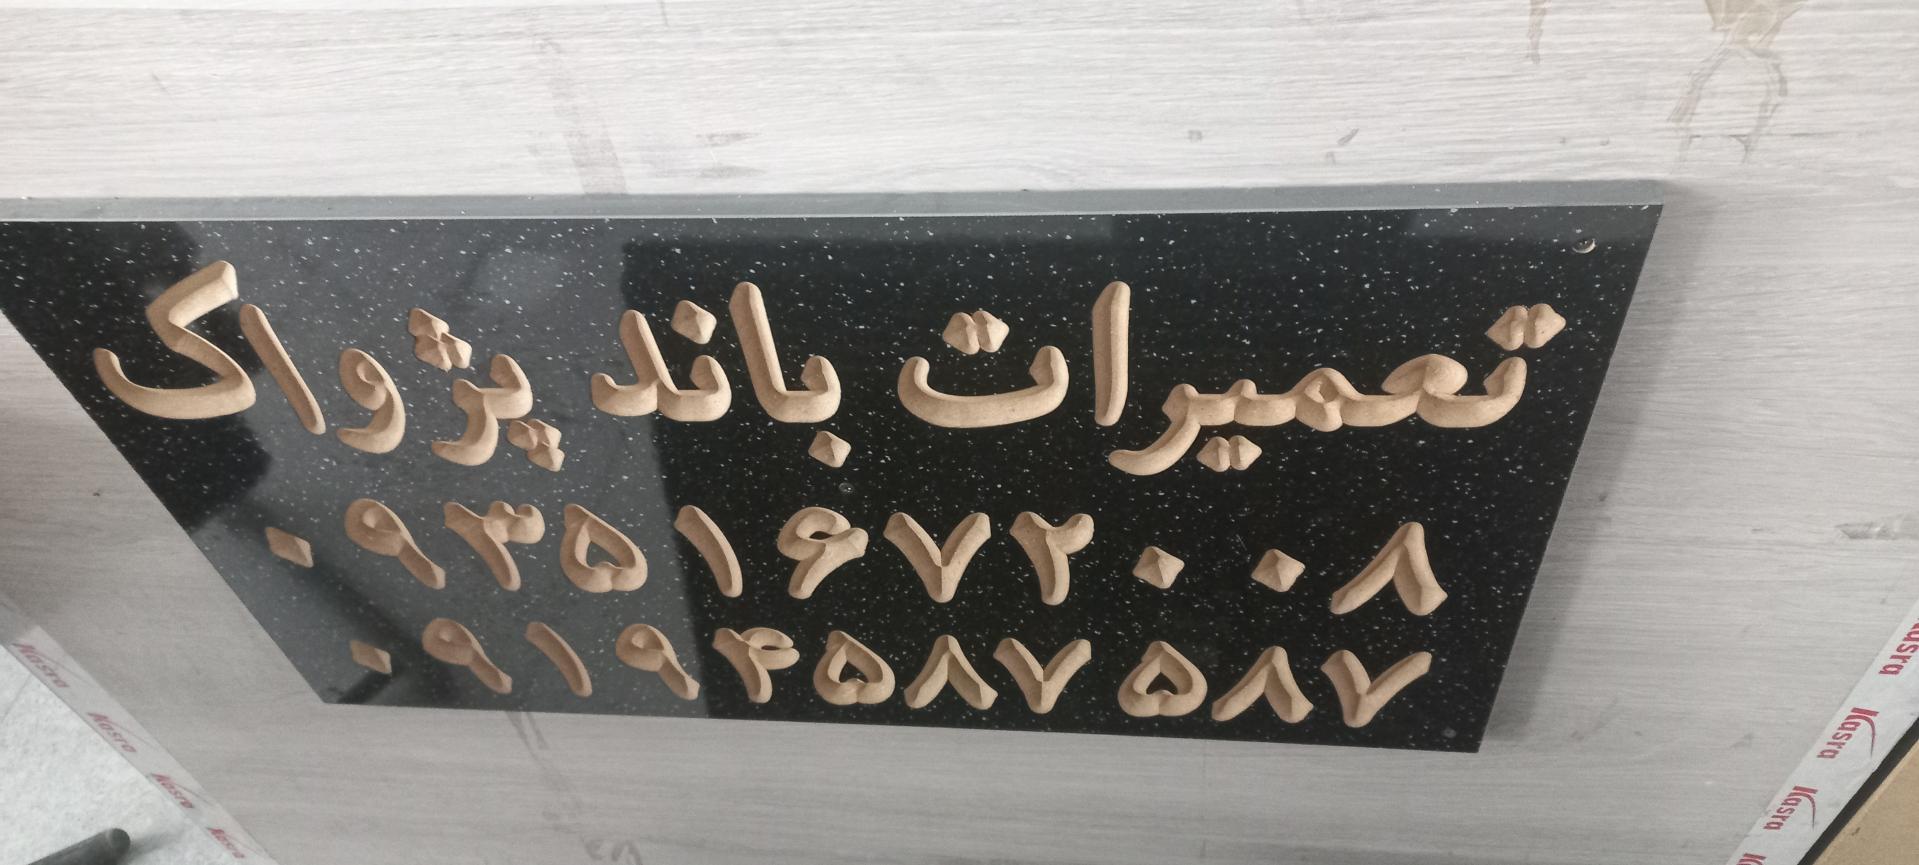 تعمیرات باند پژواک
۰۹۳۵۱۶۷۲۰۰۸
۰۹۱۹۴۵۸۷۵۸۷
Kasra
Kasra
Kasra
Kasra
Kasra
Kasra
Kasra